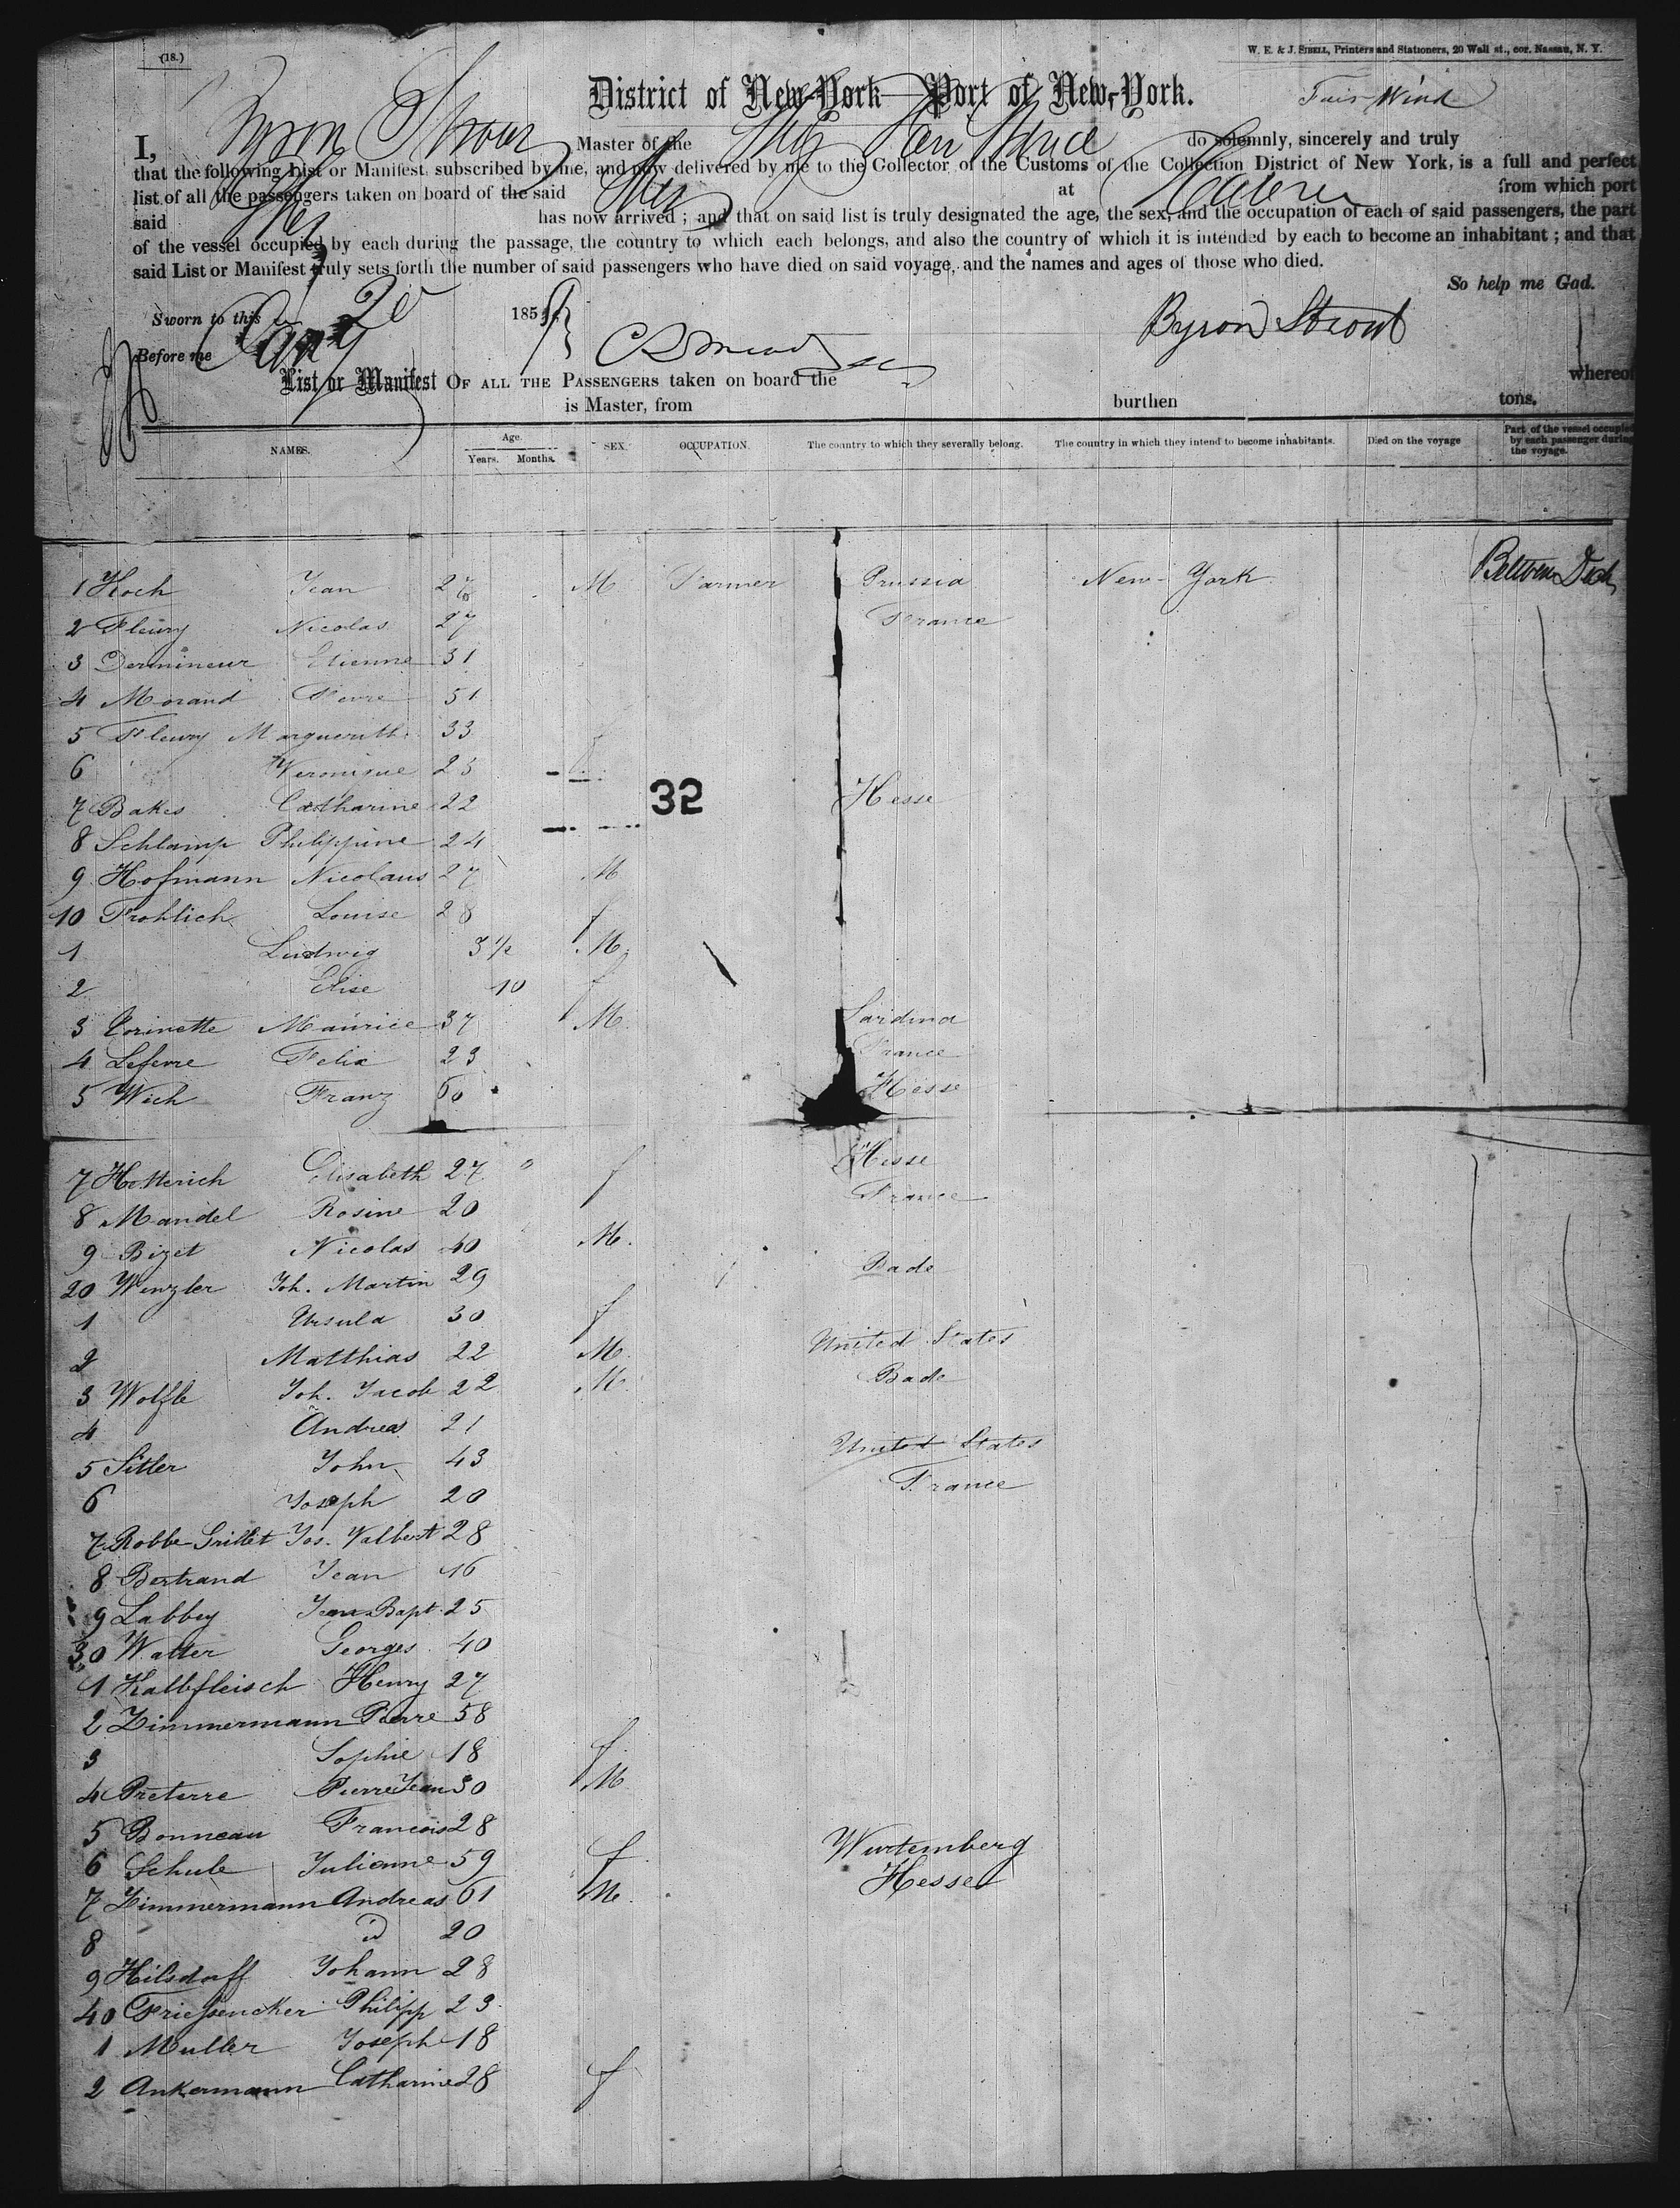 (18.)
W. E. & J. SIBELL, Printers and Stationers, 20 Wall st., cor. Nassau, N. Y.
District of New-York Port of New-York.
Fair Wind
I, Byron Strout Master of the Ship do solemnly, sincerely and truly
that the following List or Manifest, subscribed by me, and now delivered by me to the Collector of the Customs of the Collection District of New York, is a full and perfect
list of all the passengers taken on board of the said Ship at from which port
said Ship has now arrived ; and that on said list is truly designated the age, the sex, and the occupation of each of said passengers, the part
of the vessel occupied by each during the passage, the country to which each belongs, and also the country of which it is intended by each to become an inhabitant ; and that
said List or Manifest truly sets forth the number of said passengers who have died on said voyage, and the names and ages of those who died.
So help me Gad.
Sworn to this 20 185
Byron Strout
Before me
List or Manifest OF ALL THE PASSENGERS taken on board the whereof
is Master, from burthen tons.
NAMES. Age. Years. Months. SEX. OCCUPATION. The country to which they severally belong. The country in which they intend to become inhabitants. Died on the voyage Part of the vessel occupied by each passenger during the voyage.
1 Koch Jean M Farmer Prussia New-York Between Deck
2 Fleury Nicolas 27 France
3 Dermineur Etienne 31
4 Morand Pierre 51
5 Fleury Marguerith 33
6 Veronique 23
32
7 Bakes Catharine 22 Hesse
8 Schlamp Philippine 24
9 Hofmann Nicolaus 27 M
10 Frohlich Louise 28 f
1 Ludwig 3 1/2 M
2 Elise 10 f
3 Corinette Maurice 37 M Sardina
4 Lefevre Felix 23 France
5 Wich Franz 60 Hesse
7 Hetterich Elisabeth 27 " f Hesse
8 Mandel Rosine 20 France
9 Bizet Nicolas 40 M.
20 Wenzler Joh. Martin 29 Bade
1 Ursula 30 f
2 Matthias 22 M. United States
3 Wolfle Joh. Jacob 22 M. Bade
4 Andreas 21
5 Sitler John 43 United States
6 Joseph 20 France
7 Robbe-Grillet Jos. Valbert 28
8 Bertrand Jean 16
9 Labbey Jean Bapt. 25
30 Walter Georges 40
1 Kalbfleisch Henry 27
2 Zimmermann Pierre 58
3 Sophie 18 f
4 Preterre Pierre Jean 30 M
5 Bonneau Francois 28
6 Schule Julianne 59 f Wurtemberg
7 Zimmermann Andreas 61 M. Hesse
8 id 20
9 Hilsdorff Johann 28
40 Friessencker Philipp 23
1 Muller Joseph 18
2 Ankermann Catharine 28 f